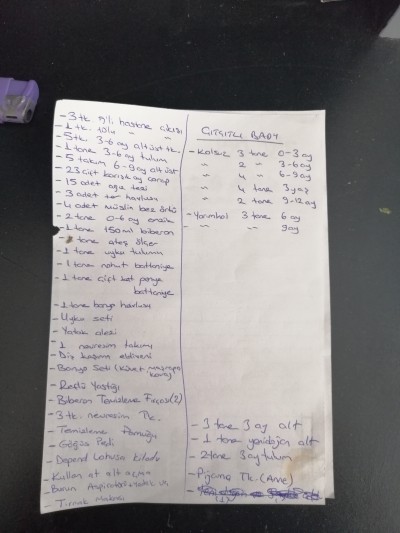 - 3 tk. 5'li hastane çıkışı
- 1 tk. 10lu " "
- 5 tk. 3-6 ay alt üst tk.
- 1 tane 3-6 ay tulum
- 5 takım 6-9 ay alt üst
- 23 çift karışık ay çorap
- 15 adet ağız bezi
- 3 adet ter havlusu
- 4 adet müslin bez örtü
- 2 tane 0-6 ay emzik
- 1 tane 150 ml biberon
- 1 tane ateş ölçer
- 1 tane uyku tulumu
- 1 tane nohut battaniye
- 1 tane çift kat penye
battaniye
- 1 tane banyo havlusu
- Uyku seti
- Yatak alezi
- 1 nevresim takımı
- Diş kaşıma eldiveni
- Banyo Seti (Küvet, maşrapa
- Reflü Yastığı
- Biberon Temizleme Fırçası (2)
- 3 tk. nevresim Tk.
- Temizleme Pamuğu
- Göğüs Pedi
- Depend Lohusa Kilodu
- Kullan at alt açma
- Burun Aspiratörü
- Tırnak Makası
ÇITÇITLI BADY
- Kolsuz 3 tane 0-3 ay
" 2 " 3-6 ay
" 4 " 6-9 ay
" 4 tane 3 ay
" 2 tane 9-12 ay
- Yarımkol 3 tane 6 ay
- " " 9 ay
- 3 tane 3 ay alt
- 1 tane yenidoğan alt
- 2 tane 3 ay tulum
- Pijama Tk. (Anne)